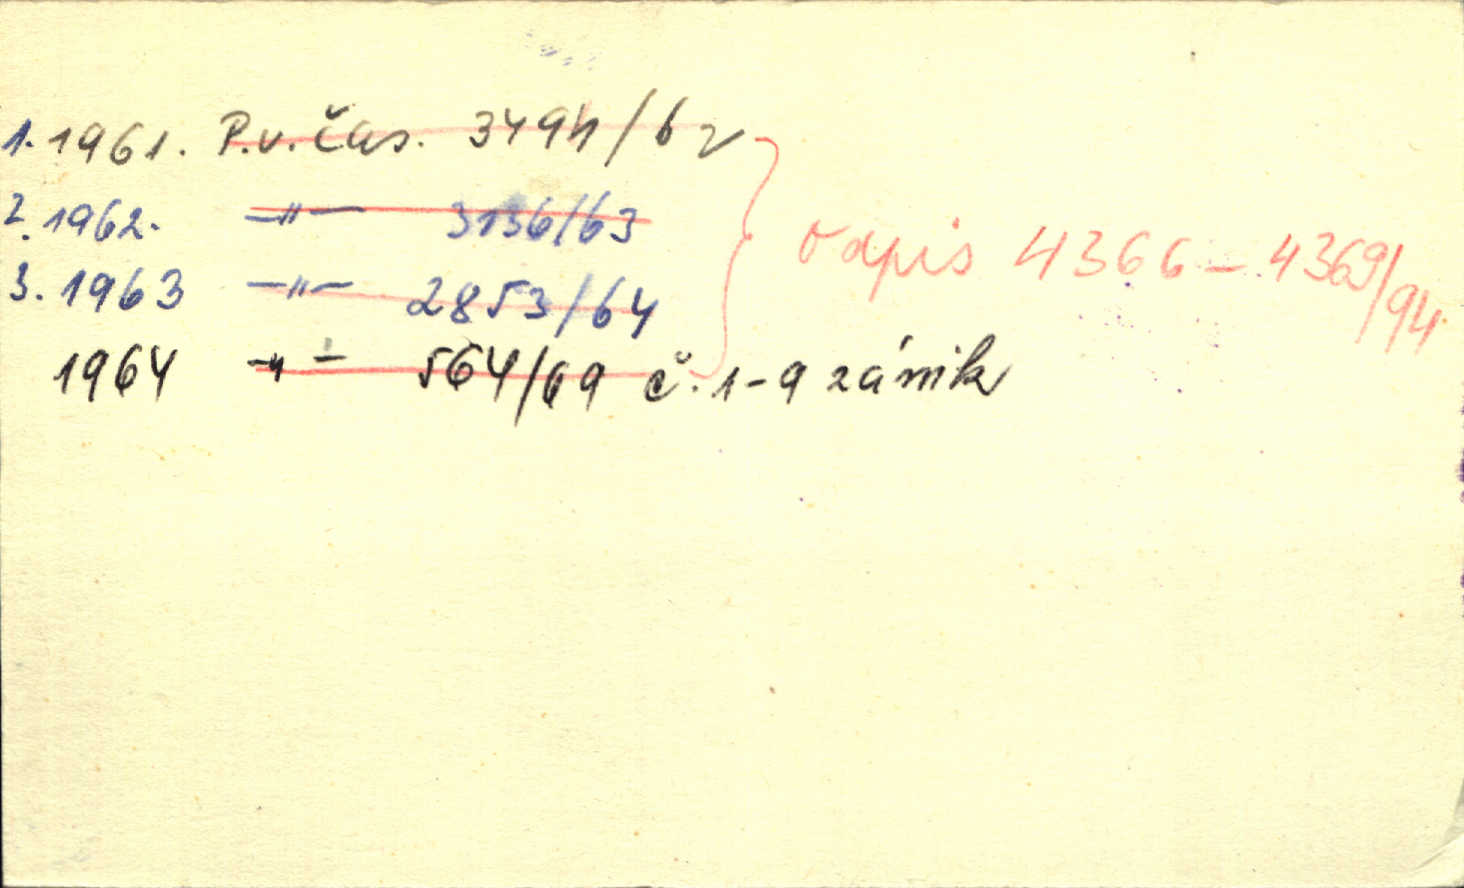 1. 1961. P.v. čas. 3494/62
2. 1962. -"- 3136/63
3. 1963 -"- 2853/64
1964 -"- 564/69 č. 1-9 zánik
odpis 4366-4369/94